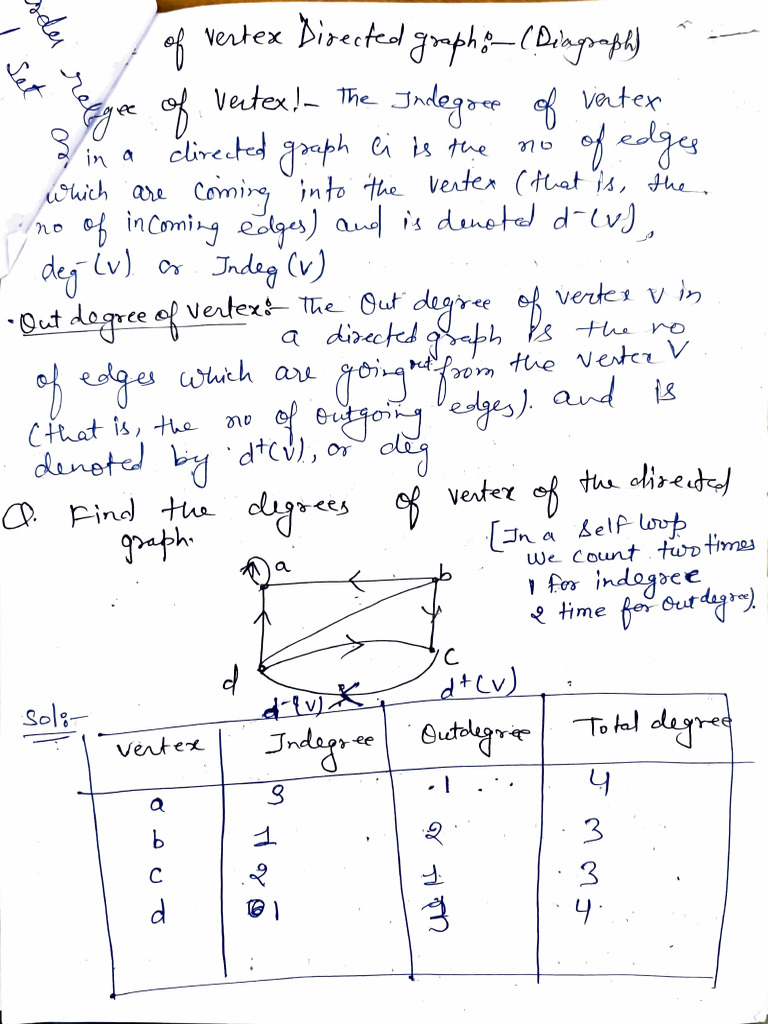 rder
1 Set
of vertex Directed graph:- (Diagraph)
gee of Vertex!- The Indegree of vertex
in a directed graph G is the no of edges
which are coming into the vertex (that is, the
no of incoming edges) and is denoted d-(v),
deg-(v) or Indeg (v)
• Out degree of vertex:- The Out degree of vertex v in
a directed graph is the no
of edges which are going out from the vertex V
(that is, the no of outgoing edges). and is
denoted by d+(v), or deg
Q. Find the degrees of vertex of the directed
graph.
[In a self loop
we count two times
1 for indegree
2 time for outdegree).
a
b
d
c
d-(v)
d+(v)
Sol:-
Vertex Indegree Outdegree Total degree
a 3 1 4
b 1 2 3
c 2 1 3
d 1 3 4